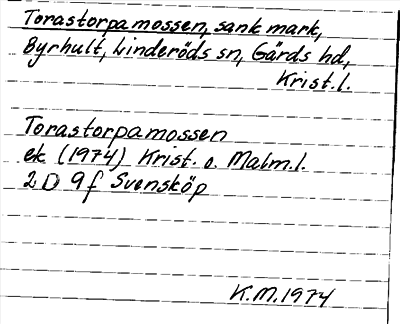 Torastorpamossen, sank mark,
Byrhult, Linderöds sn, Gärds hd,
Krist.l.
Torastorpamossen
ek (1974) Krist. o. Malm.l.
2 D 9 f Svensköp
K.M.1974